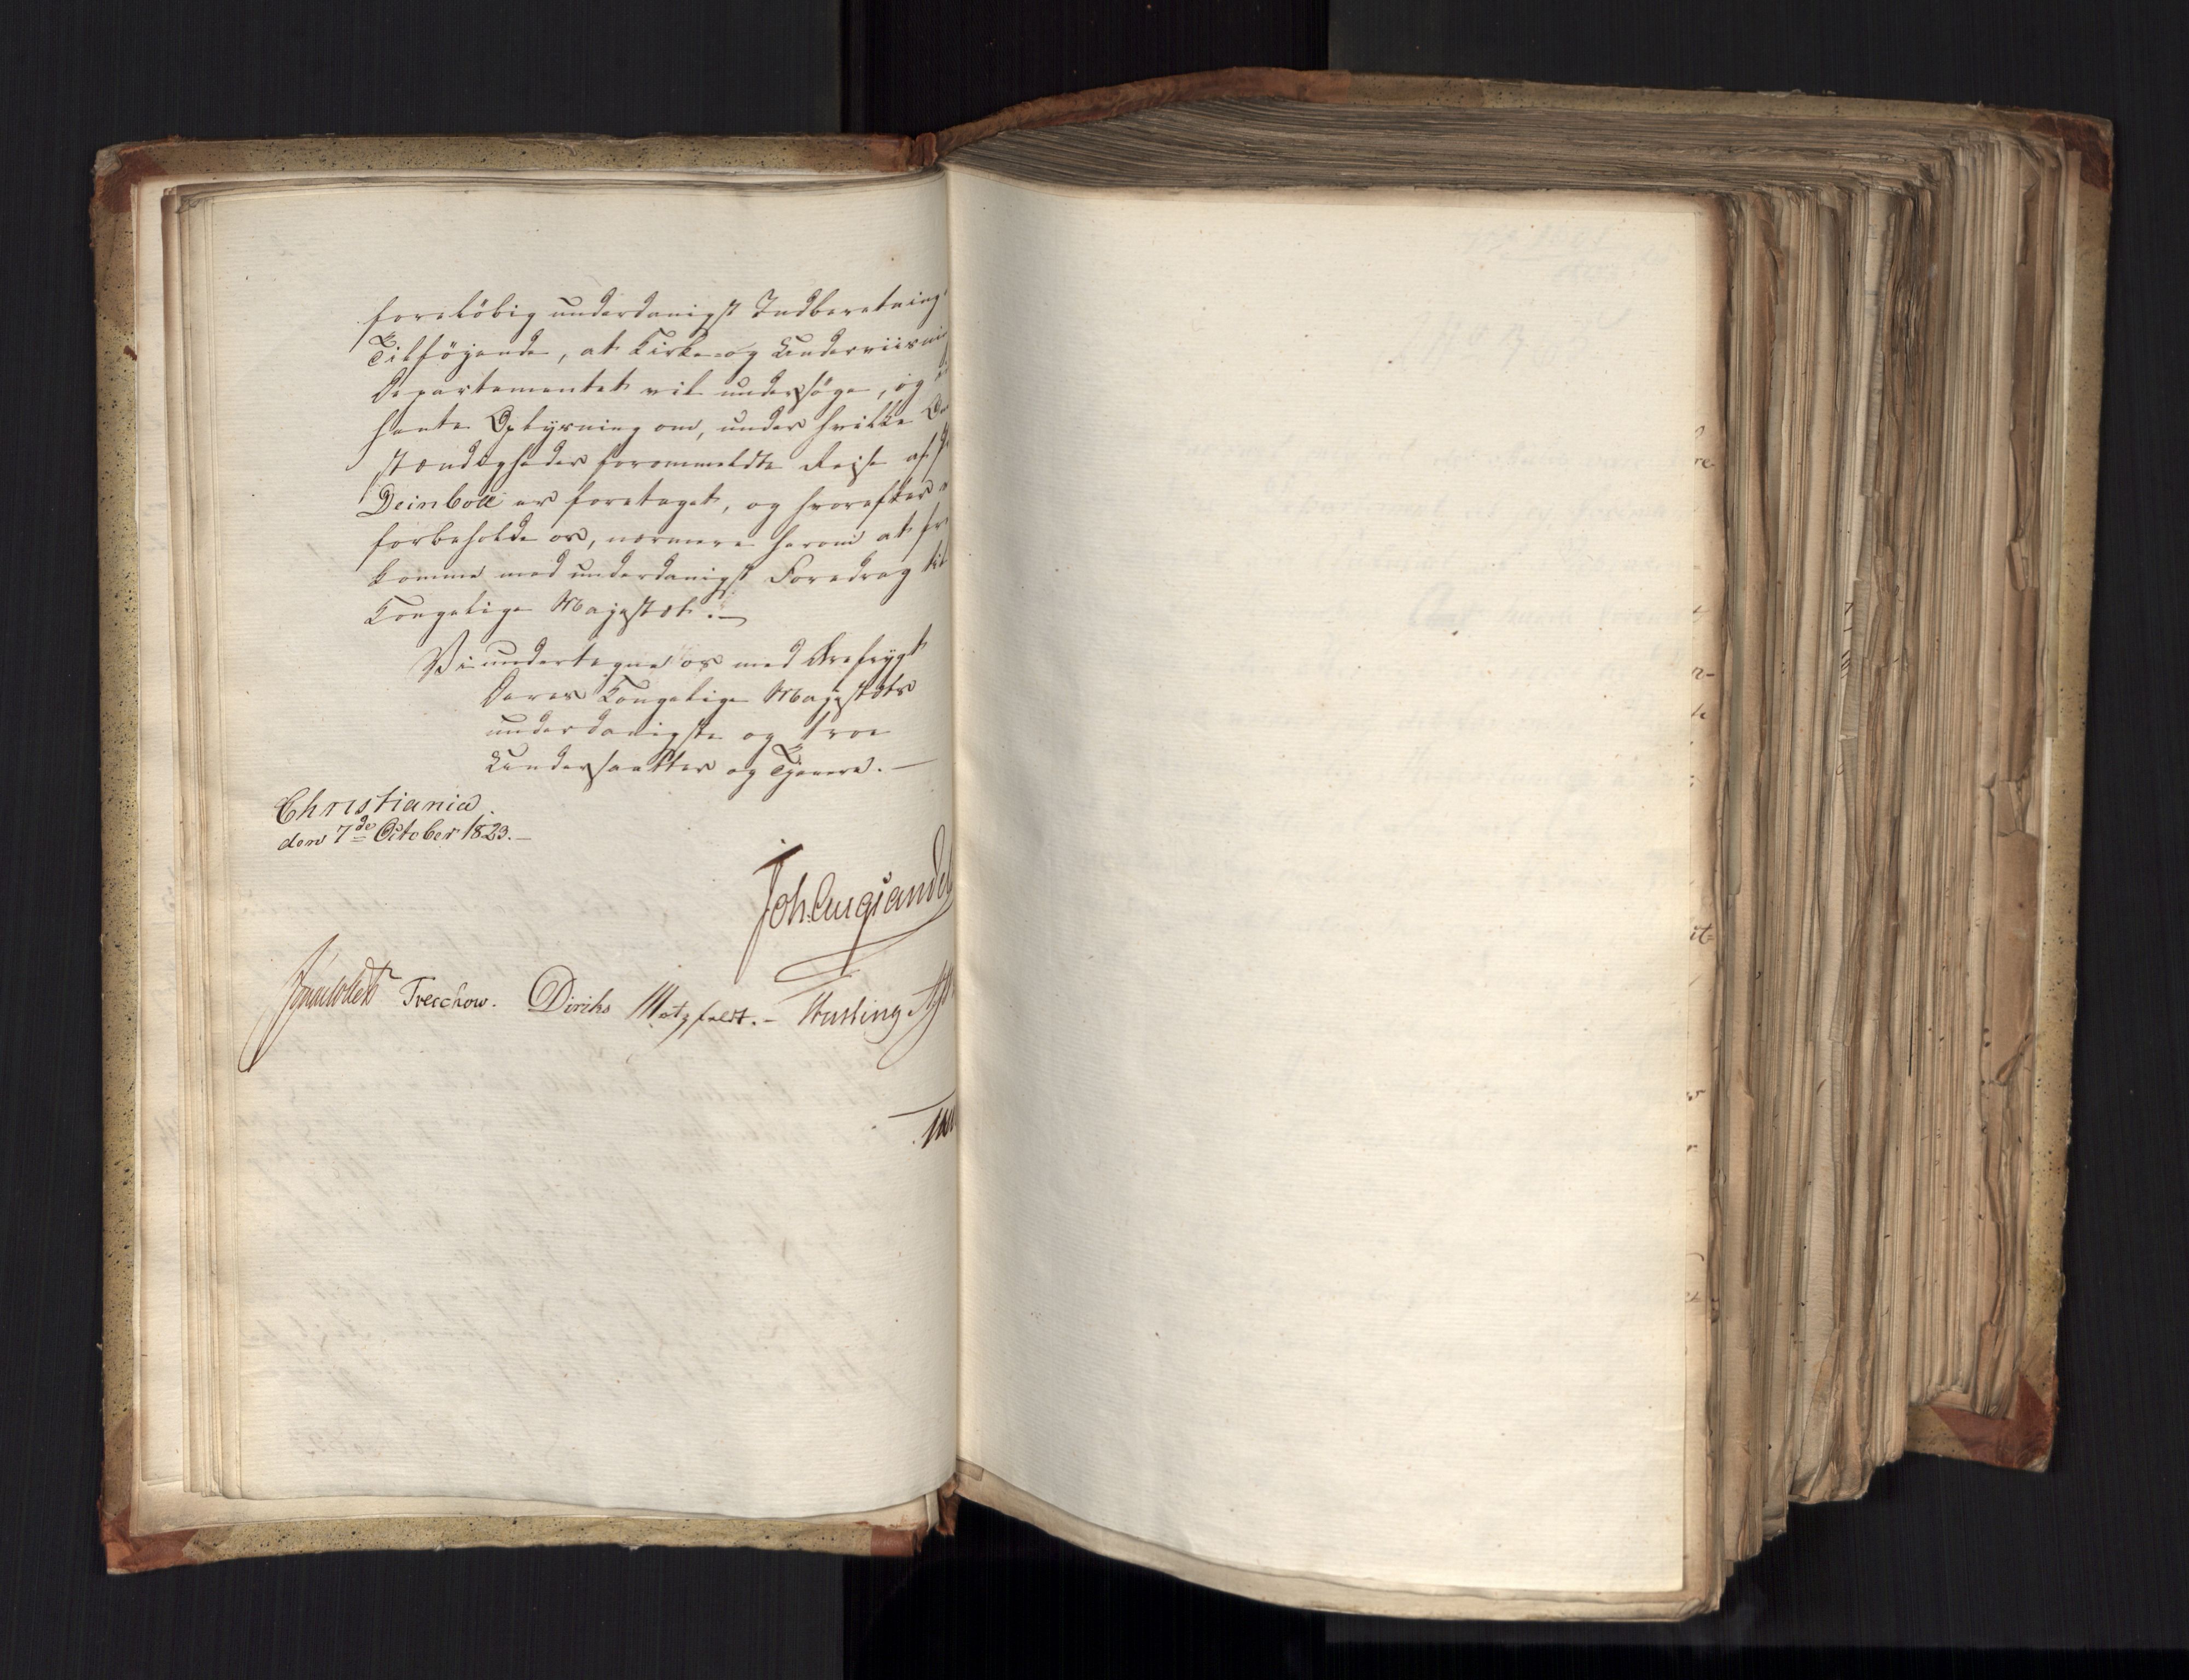 foreløbig underdanigst Indberetning
Tilføjende, at Kirke- og Underviisni
Departementet vil undersøge, og
hente Oplysning om, under hvilke
stændigheder forommeldte Reise af
Deinboll er foretaget, og hvorefter
forbeholde os, nærmere herom at fr
komme med underdanigst Foredrag til
Kongelige Majestæt.—
Vi undertegne os med Ærefrygt
Deres Kongelige Majestæts
underdanigste og troe
Undersaatter og Tjenere.—
Christiania
den 7de October 1823.—
Joh. Aug. Sandel
Sommerfeldt Treschow. Diriks Motzfeldt.—